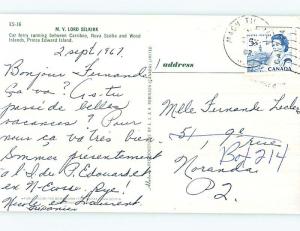 ES-16
M. V. LORD SELKIRK
Car ferry running between Caribou, Nova Scotia and Wood
Islands, Prince Edward Island.
2 sept 1967.
Bonjour Fernande
Ça va? As-tu
passé de belles
vacances? Pour
nous ça va très bien.
Sommes présentement
à l'I. du P. Édouard et
en N-Écosse. Bye!
Nicole et Laurent
address
CANADA
5
Mlle Fernande
51, 9e rue
Box 214
Noranda
P.2.